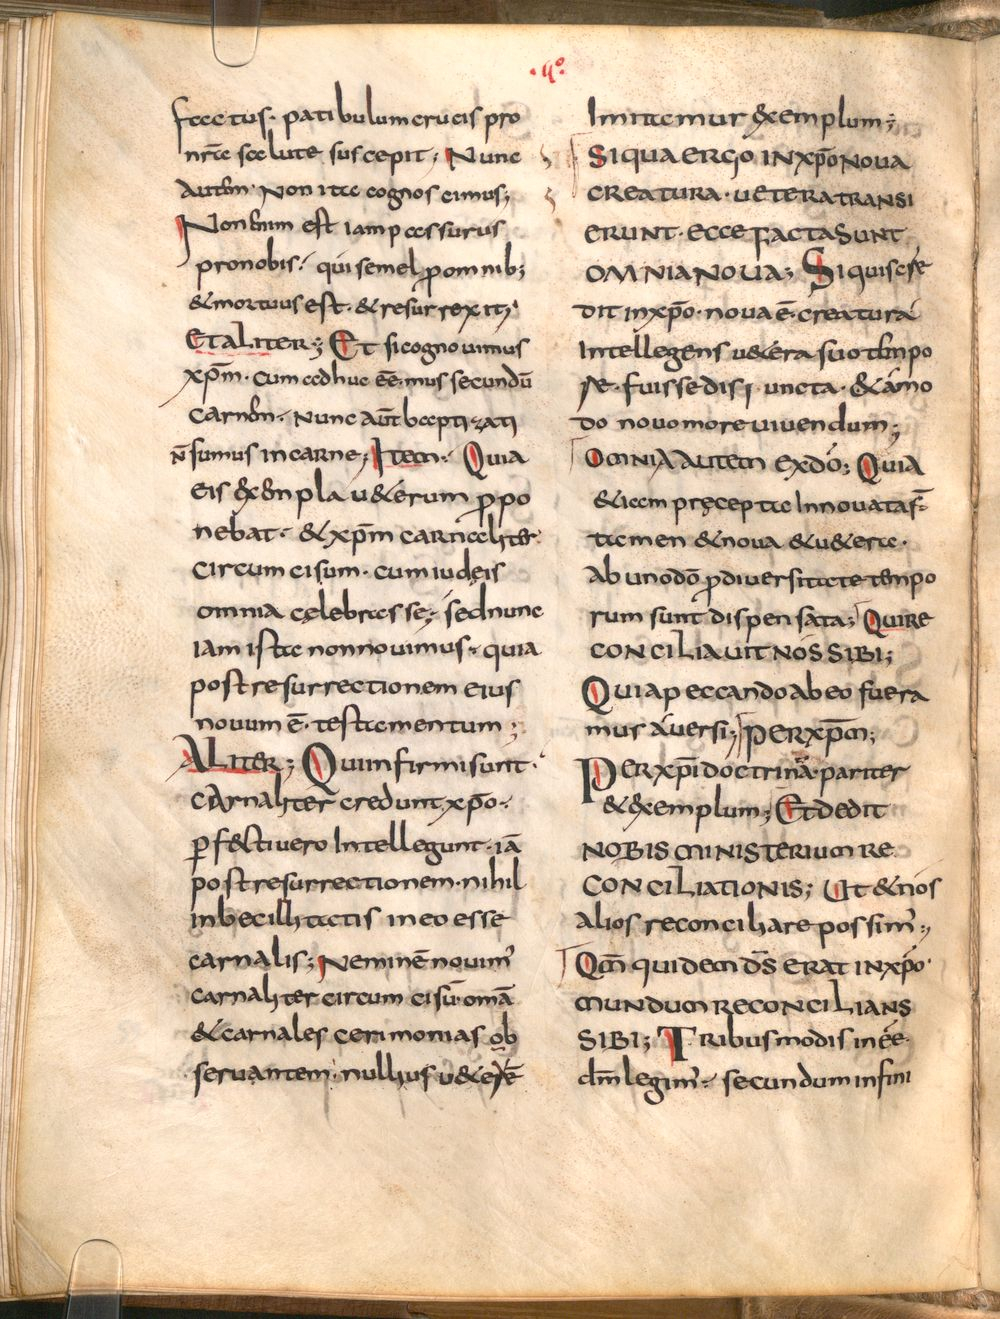 factus· patibulum crucis pro
nr̄a salute suscepit; Nunc
autem· Non ita cognoscimus;
Non enim est iam passurus
pro nobis· qui semel pro omnib;
& mortuus est· & resurrexit;
ET ALITER; Et si cognovimus
xp̄m· cum adhuc eēmus secundū
carnem· Nunc aut̄ baptizati
n̄ sumus in carne; Item· Quia
eis exempla u&erum propo
nebat· & xp̄m carnaliter
circumcisum· cum iudęis
omnia cęlebrasse; sed nunc
iam ista non novimus· quia
post resurrectionem eius
novum ē· testamentum;
ALITER; Qui infirmi sunt·
carnaliter credunt xp̄o·
perf&ti vero Intellegunt· iā
post resurrectionem· nihil
inbecillitatis in eo esse
carnalis; Neminē novim'
carnaliter circumcisū· omā
& carnales cerimonias ob
servantem· nullius u&
Imitemur exemplum;
SI QUA ERGO IN XP̄O NOVA
CREATURA· UETERA TRANSI
ERUNT· ECCE FACTA SUNT
OMNIA NOUA; Si quis cre
dit in xp̄o· nova ē creatura
Intellegens u&era suo tempo
re· fuisse disiuncta· & amo
do novo more vivendum;
OMNIA AUTEM EX DŌ; Quia
& iam pręcepta Innovata s̄
tamen & nova & u&era·
ab uno dō pro diversitate tempo
rum sunt dispensata; QUI RE
CONCILIAUIT NOS SIBI;
Quia peccando ab eo fuera
mus aversi; PER XP̄M;
Per xp̄i doctrinā· pariter
& exemplum; Et dedit
NOBIS MINISTERIUM RE
CONCILIATIONIS; Ut & nos
alios reconciliare possim';
Qm̄ QUIDEM DS̄ ERAT IN XP̄O·
MUNDUM RECONCILIANS
SIBI; Tribus modis inēe
dm̄ legim'· secundum infini